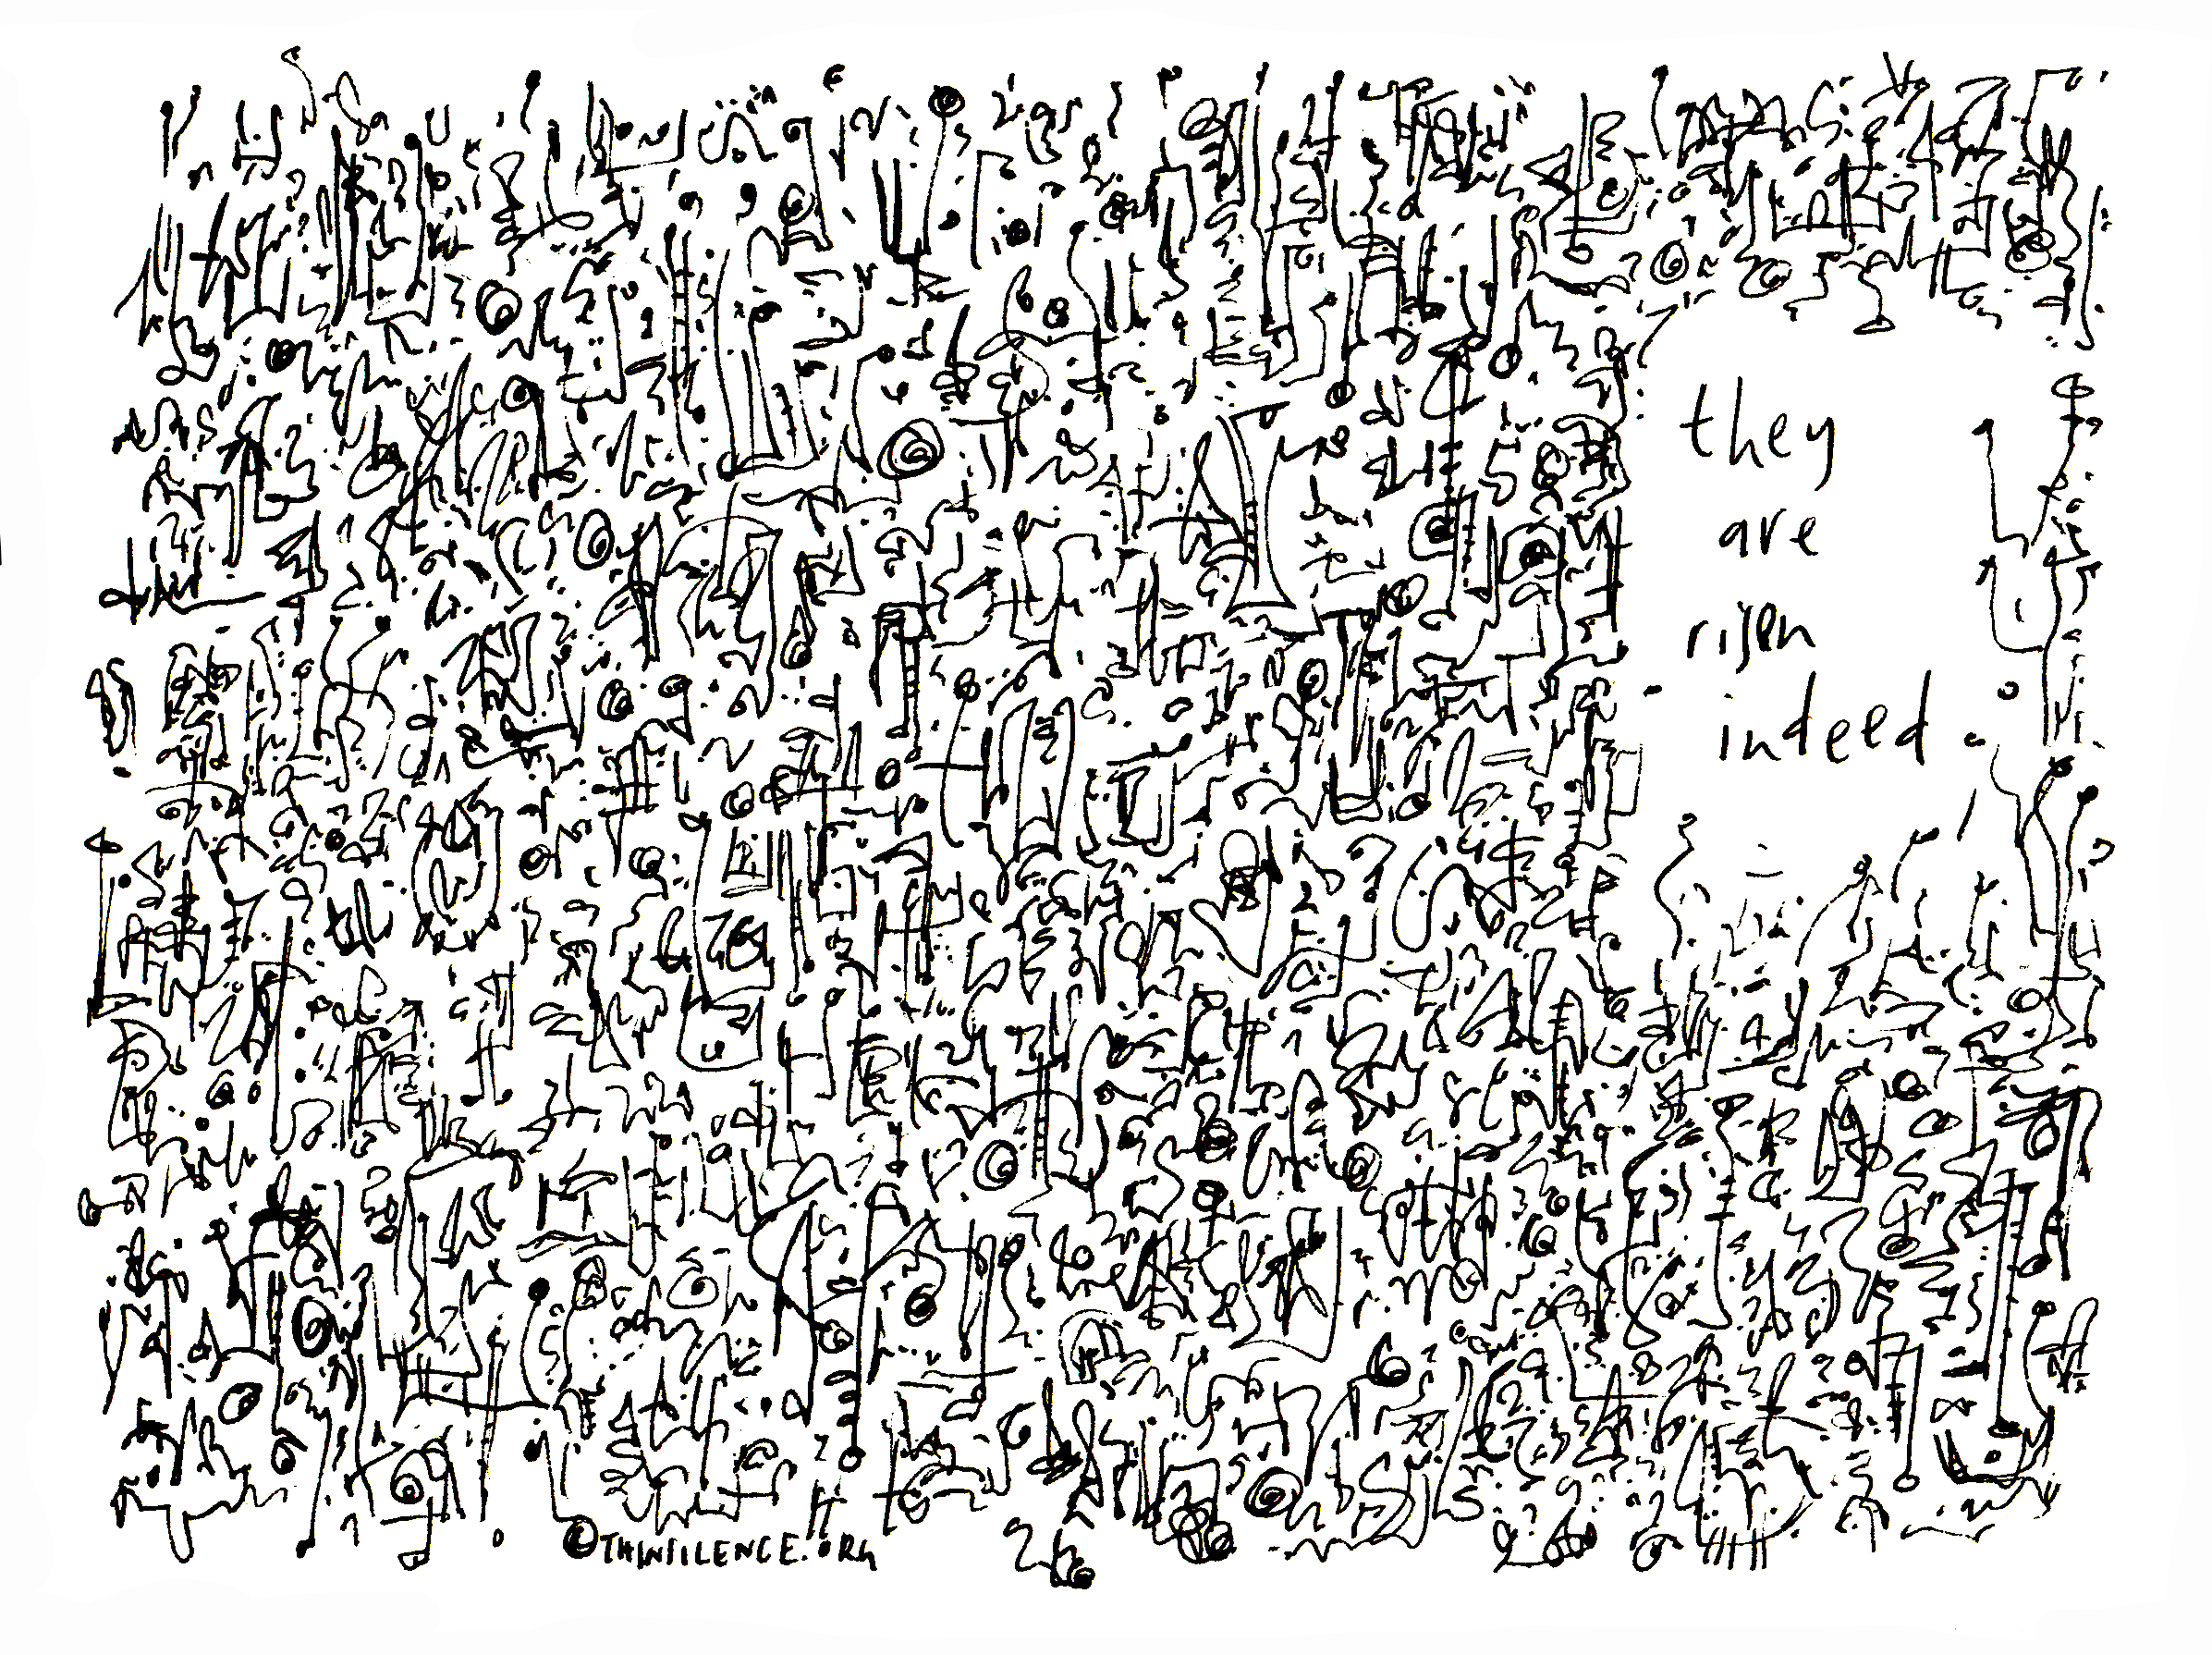 they
are
risen
indeed
©THINSILENCE.ORG